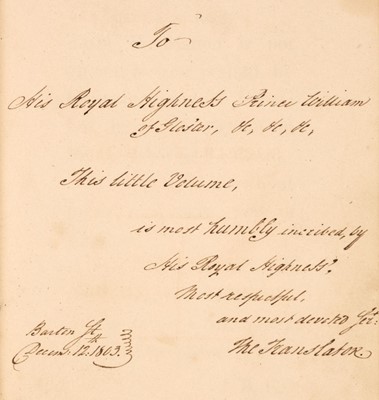 To
His Royal Highness Prince William
of Gloster, &c, &c, &c,
This little Volume,
is most humbly inscribed, by
His Royal Highness's,
Most respectful,
and most devoted Sert:
The Translator.
Barton St.
Decem. 12th. 1803.